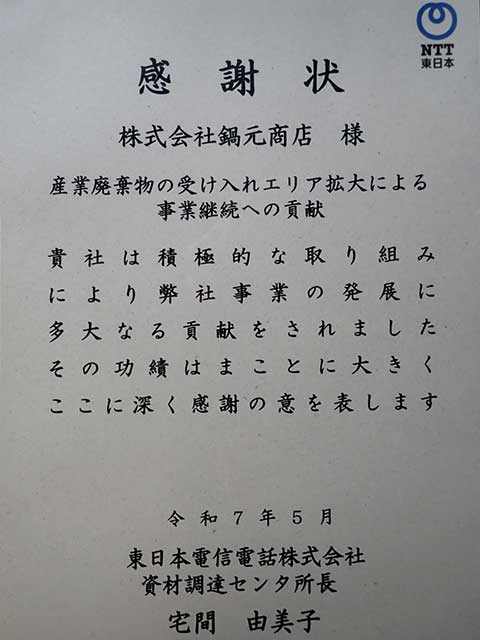 NTT
東日本
感謝状
株式会社鍋元商店 様
産業廃棄物の受け入れエリア拡大による
事業継続への貢献
貴社は積極的な取り組み
により弊社事業の発展に
多大なる貢献をされました
その功績はまことに大きく
ここに深く感謝の意を表します
令和7年5月
東日本電信電話株式会社
資材調達センタ所長
宅間 由美子